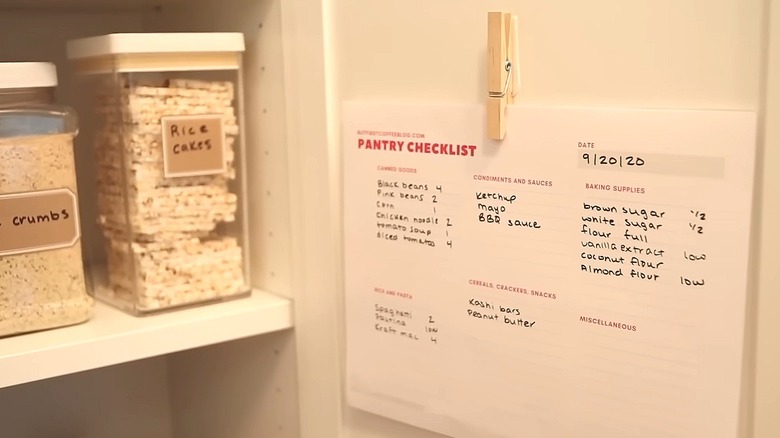 crumbs
Rice
cakes
BUTFIRSTCOFFEEBLOG.COM
PANTRY CHECKLIST
DATE
9/20/20
CANNED GOODS
Black beans 4
Pink beans 2
Corn 1
Chicken noodle 2
tomato soup 1
diced tomatoes 4
CONDIMENTS AND SAUCES
Ketchup
mayo
BBQ sauce
BAKING SUPPLIES
brown sugar 1/2
white sugar 1/2
flour full
vanilla extract low
coconut flour
Almond flour low
RICE AND PASTA
Spaghetti 2
Pastina low
Kraft mac 4
CEREALS, CRACKERS, SNACKS
Kashi bars
Peanut butter
MISCELLANEOUS